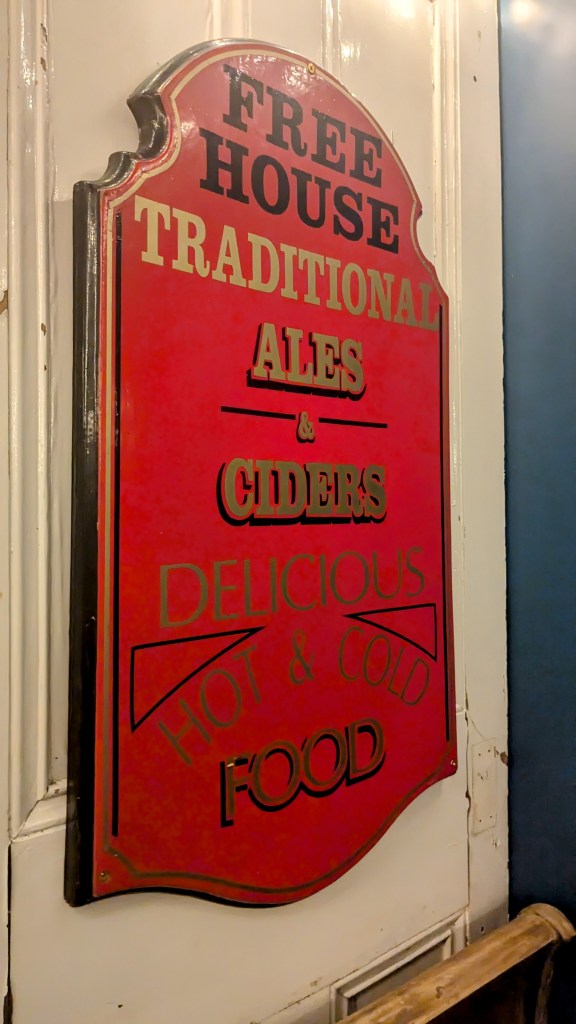 FREE
HOUSE
TRADITIONAL
ALES
&
CIDERS
DELICIOUS
HOT & COLD
FOOD